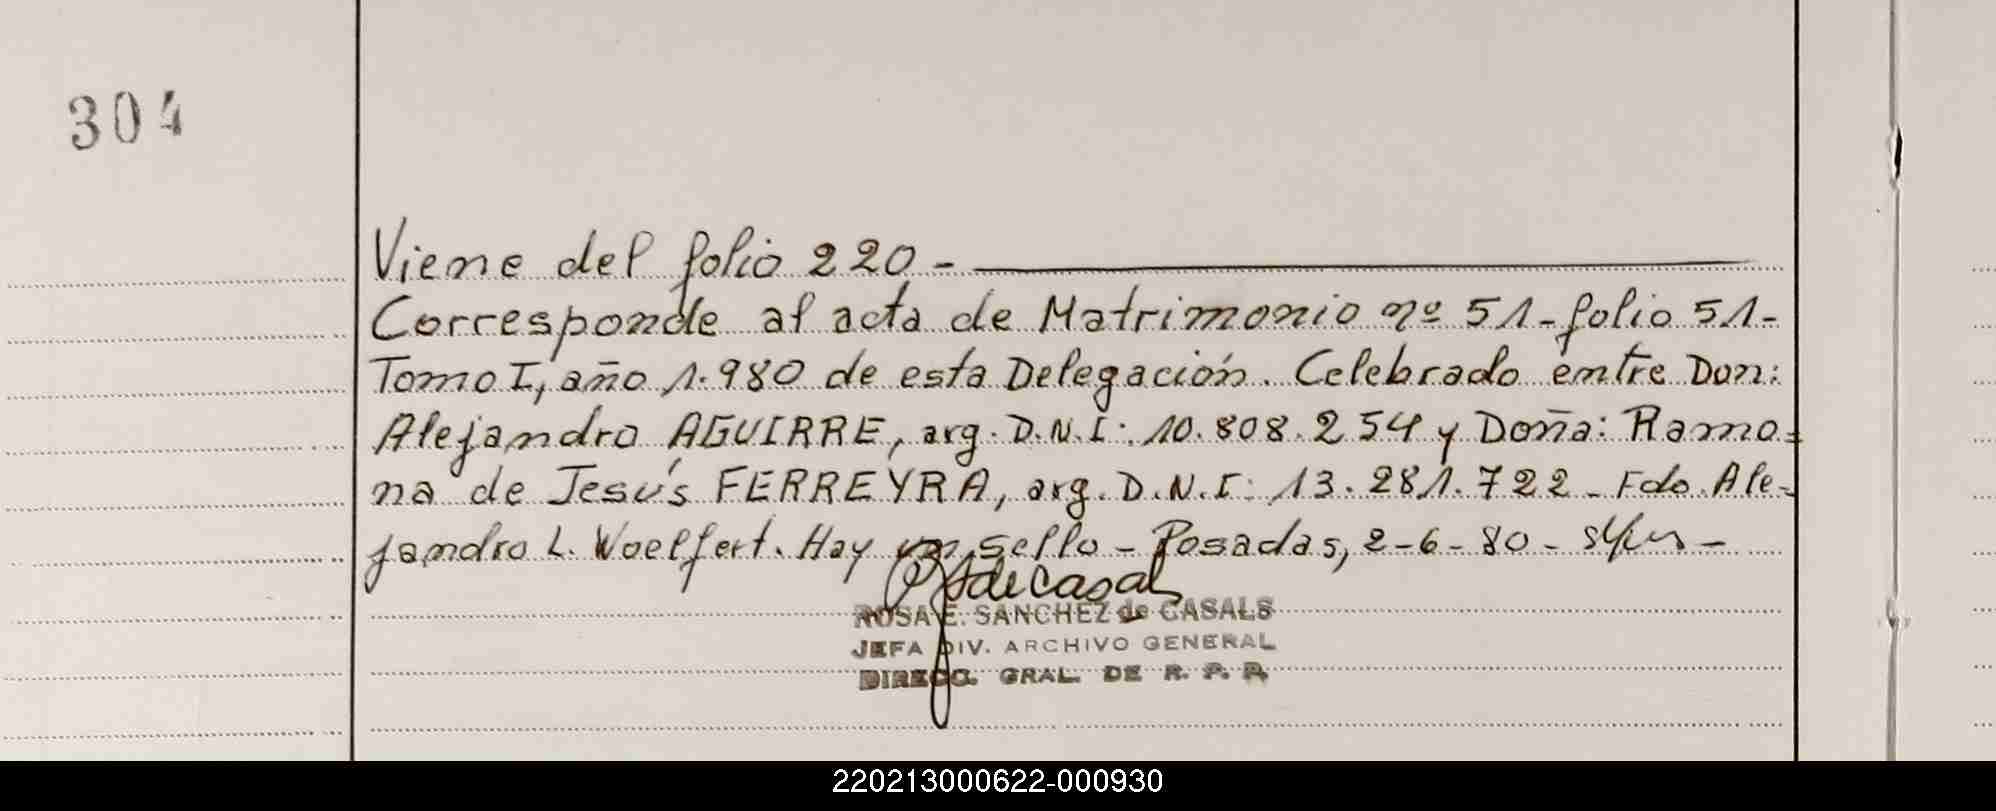 304
Viene del folio 220 -
Corresponde al acta de Matrimonio nº 51 - folio 51 -
Tomo I, año 1.980 de esta Delegación. Celebrado entre Don:
Alejandro AGUIRRE, arg. D.N.I: 10.808.254 y Doña: Ramo=
na de Jesús FERREYRA, arg. D.N.I: 13.281.722 - Fdo. Ale-
jandro L. Woelfert. Hay un sello - Posadas, 2-6-80 -
ROSA E. SANCHEZ de CASALS
JEFA DIV. ARCHIVO GENERAL
DIRECC. GRAL. DE R. P. P.
220213000622-000930